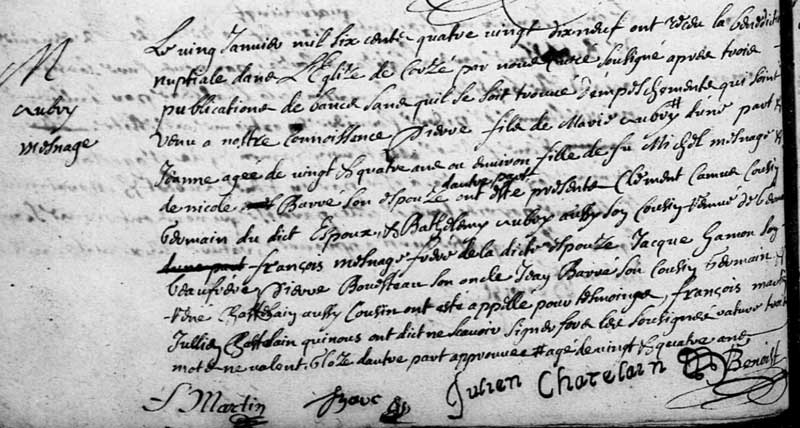 M
Aubry
mesnage
Le ving Janvier mil six cents quatre vingt dix neuf ont receu la benedict
nuptiale dans L'Eglize de Corzé par nous Curé soubsigné apres trois
publications de bancs sans quil se soit trouve d'empeschements qui soint
venu a nostre connoissance Pierre fils de Marie Aubry # d'une part
Jeanne agée de vingt & quatre ans ou environ fille de fu Michel mesnage &
de nicole Barré son espouze d'autre part ont esté presents Clement Camus Cousin
Germain du dict Espoux, & Bathelemy Aubry aussy son Cousin
francois mesnage frere de la dicte espouze Jacque hamon son
beaufrere Pierre Bousteau son oncle Jean Barré son Cousin Germain &
Chastelain aussy Cousin ont esté appellé pour tesmoings, francois
Jullien Chastelain qui nous ont dict ne scavoir signer fors les sousignes rature trois
mots ne valent. Gloze d'autre part approuvee # agé de vingt & quatre ans
S Martin
Julien Chatelain
Benoist